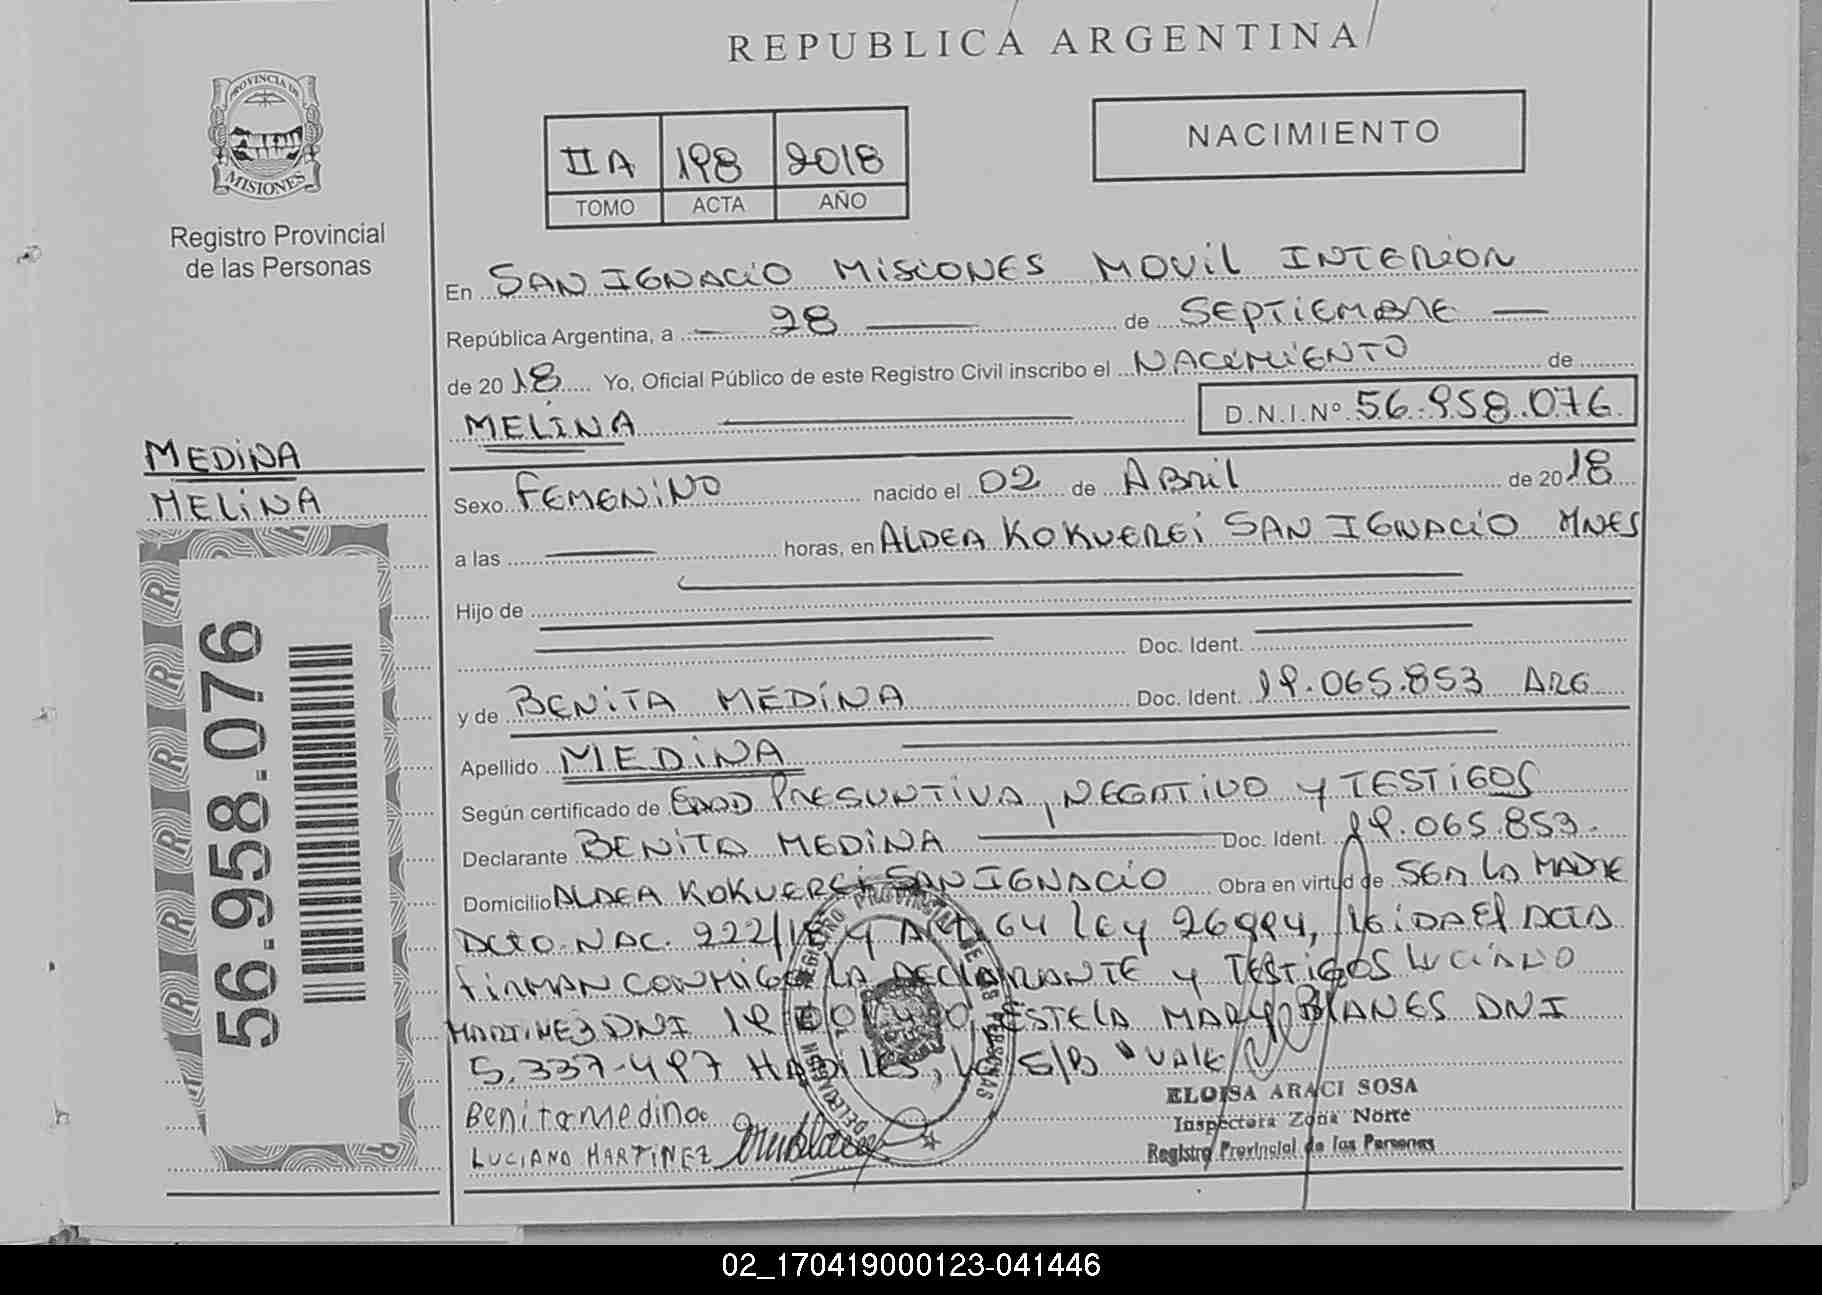 REPUBLICA ARGENTINA
PROVINCIA DE
MISIONES
Registro Provincial
de las Personas
IIA 198 2018
TOMO ACTA AÑO
NACIMIENTO
En SAN IGNACIO MISIONES MOVIL INTERIOR
República Argentina, a 28 de SEPTIEMBRE
de 2018 Yo, Oficial Público de este Registro Civil inscribo el NACIMIENTO de
MELINA D.N.I.Nº 56.958.076
MEDINA
MELINA
Sexo FEMENINO nacido el 02 de ABRIL de 2018
a las horas, en ALDEA KOKUEREI SAN IGNACIO MNES
Hijo de
Doc. Ident.
y de BENITA MEDINA Doc. Ident. 19.065.853 ARG
Apellido MEDINA
Según certificado de EDAD PRESUNTIVA, NEGATIVO Y TESTIGOS
Declarante BENITA MEDINA Doc. Ident. 19.065.853.
Domicilio ALDEA KOKUEREI SAN IGNACIO Obra en virtud de SER LA MADRE
DCTO. NAC. 222/18 Y ART. 64 LEY 26994, LEIDA EL ACTA
FIRMAN CONMIGO LA DECLARANTE Y TESTIGOS LUCIANO
MARTINEZ DNI ESTELA MARY BLANES DNI
5.337.497 HABILES, S/B VALE
Benita medina
LUCIANO MARTINEZ
ELOISA ARACI SOSA
Inspectora Zona Norte
Registro Provincial de las Personas
56.958.076
02_170419000123-041446